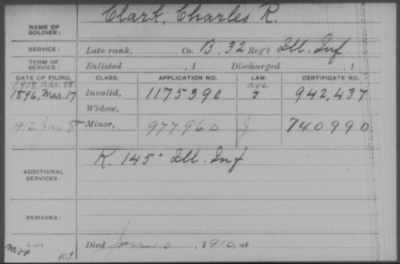 NAME OF SOLDIER: Clark, Charles R.
SERVICE: Late rank, Co. B, 32 Reg't Ill. Inf
TERM OF SERVICE: Enlisted , 1 Discharged , 1
DATE OF FILING. CLASS. APPLICATION NO. LAW. CERTIFICATE NO.
1896, Mar. 17 Invalid, 1175390 942,437
Widow,
Minor, 977960 740990
ADDITIONAL SERVICES: K. 145" Ill. Inf
REMARKS:
Died , 1910, at